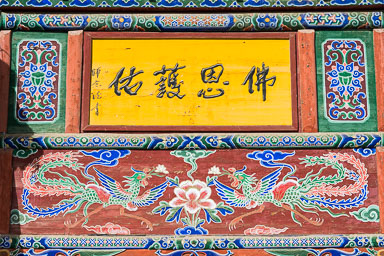 佛恩護佑